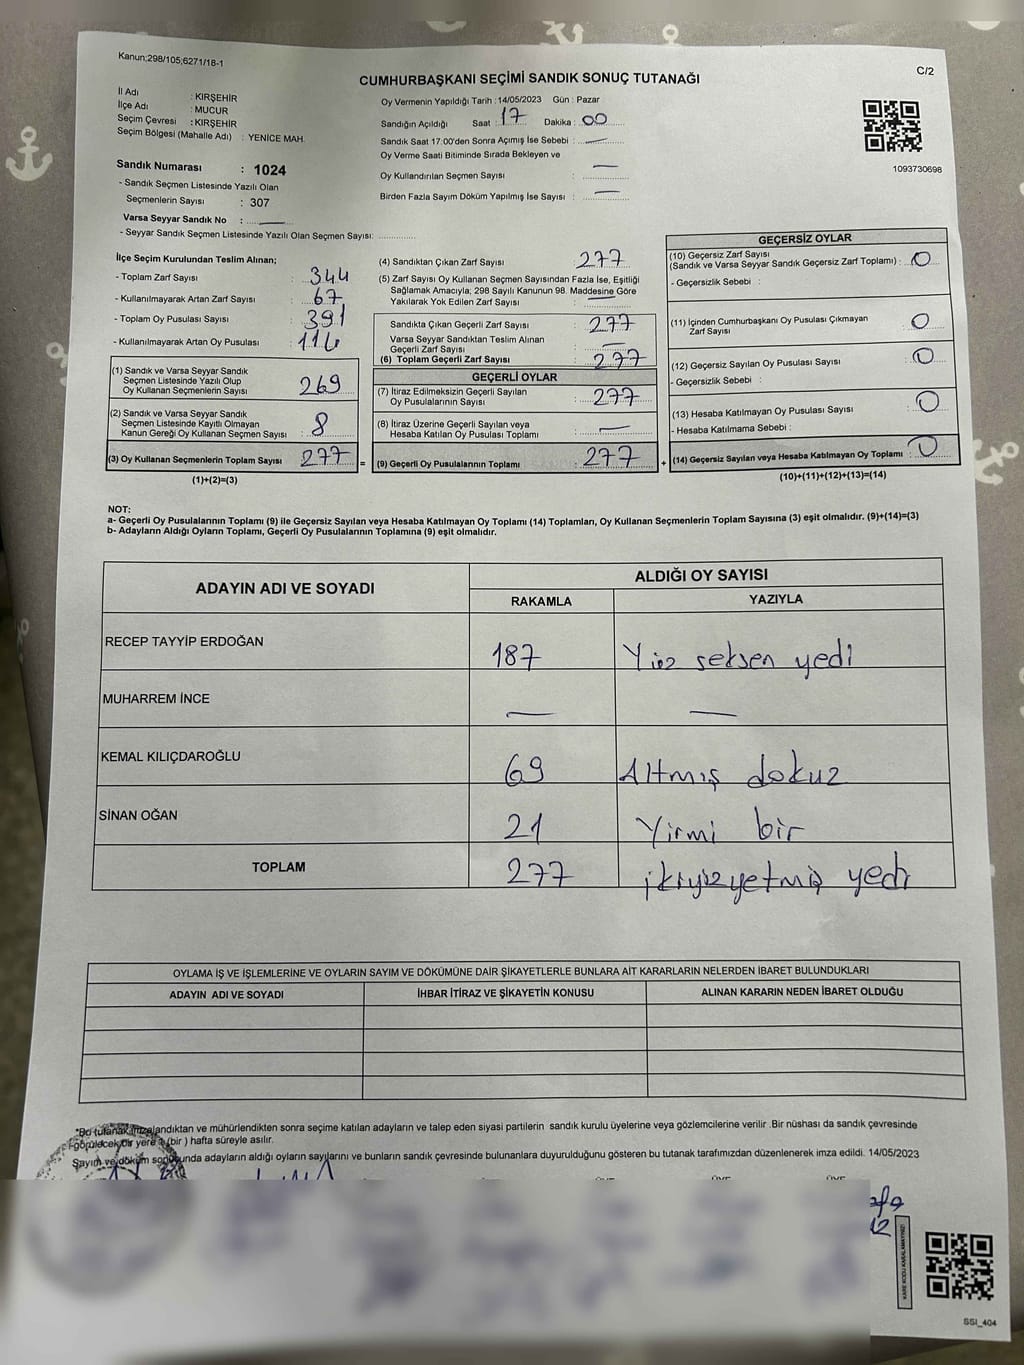 Kanun;298/105;6271/18-1
CUMHURBAŞKANI SEÇİMİ SANDIK SONUÇ TUTANAĞI
C/2
İl Adı : KIRŞEHİR
İlçe Adı : MUCUR
Seçim Çevresi : KIRŞEHİR
Seçim Bölgesi (Mahalle Adı) : YENİCE MAH.
Sandık Numarası : 1024
- Sandık Seçmen Listesinde Yazılı Olan
Seçmenlerin Sayısı : 307
Varsa Seyyar Sandık No : —
- Seyyar Sandık Seçmen Listesinde Yazılı Olan Seçmen Sayısı: ..............
Oy Vermenin Yapıldığı Tarih : 14/05/2023 Gün : Pazar
Sandığın Açıldığı Saat : 17 Dakika : 00
Sandık Saat 17:00'den Sonra Açımış İse Sebebi : —
Oy Verme Saati Bitiminde Sırada Bekleyen ve
Oy Kullandırılan Seçmen Sayısı : —
Birden Fazla Sayım Döküm Yapılmış İse Sayısı : —
1093730698
İlçe Seçim Kurulundan Teslim Alınan;
- Toplam Zarf Sayısı : 344
- Kullanılmayarak Artan Zarf Sayısı : 67
- Toplam Oy Pusulası Sayısı : 391
- Kullanılmayarak Artan Oy Pusulası :
(1) Sandık ve Varsa Seyyar Sandık
Seçmen Listesinde Yazılı Olup
Oy Kullanan Seçmenlerin Sayısı 269
(2) Sandık ve Varsa Seyyar Sandık
Seçmen Listesinde Kayıtlı Olmayan
Kanun Gereği Oy Kullanan Seçmen Sayısı : 8
(3) Oy Kullanan Seçmenlerin Toplam Sayısı : 277 =
(1)+(2)=(3)
(4) Sandıktan Çıkan Zarf Sayısı : 277
(5) Zarf Sayısı Oy Kullanan Seçmen Sayısından Fazla İse, Eşitliği
Sağlamak Amacıyla; 298 Sayılı Kanunun 98. Maddesine Göre
Yakılarak Yok Edilen Zarf Sayısı : —
Sandıkta Çıkan Geçerli Zarf Sayısı : 277
Varsa Seyyar Sandıktan Teslim Alınan
Geçerli Zarf Sayısı : —
(6) Toplam Geçerli Zarf Sayısı : 277
GEÇERLİ OYLAR
(7) İtiraz Edilmeksizin Geçerli Sayılan
Oy Pusulalarının Sayısı : 277
(8) İtiraz Üzerine Geçerli Sayılan veya
Hesaba Katılan Oy Pusulası Toplamı : —
(9) Geçerli Oy Pusulalarının Toplamı : 277 +
GEÇERSİZ OYLAR
(10) Geçersiz Zarf Sayısı
(Sandık ve Varsa Seyyar Sandık Geçersiz Zarf Toplamı) : 0
- Geçersizlik Sebebi :
(11) İçinden Cumhurbaşkanı Oy Pusulası Çıkmayan
Zarf Sayısı 0
(12) Geçersiz Sayılan Oy Pusulası Sayısı : 0
- Geçersizlik Sebebi :
(13) Hesaba Katılmayan Oy Pusulası Sayısı : 0
- Hesaba Katılmama Sebebi :
(14) Geçersiz Sayılan veya Hesaba Katılmayan Oy Toplamı : 0
(10)+(11)+(12)+(13)=(14)
NOT:
a- Geçerli Oy Pusulalarının Toplamı (9) ile Geçersiz Sayılan veya Hesaba Katılmayan Oy Toplamı (14) Toplamları, Oy Kullanan Seçmenlerin Toplam Sayısına (3) eşit olmalıdır. (9)+(14)=(3)
b- Adayların Aldığı Oyların Toplamı, Geçerli Oy Pusulalarının Toplamına (9) eşit olmalıdır.
ADAYIN ADI VE SOYADI ALDIĞI OY SAYISI
RAKAMLA YAZIYLA
RECEP TAYYİP ERDOĞAN 187 Yüz seksen yedi
MUHARREM İNCE — —
KEMAL KILIÇDAROĞLU 69 Altmış dokuz
SİNAN OĞAN 21 Yirmi bir
TOPLAM 277 ikiyüzyetmiş yedi
OYLAMA İŞ VE İŞLEMLERİNE VE OYLARIN SAYIM VE DÖKÜMÜNE DAİR ŞİKAYETLERLE BUNLARA AİT KARARLARIN NELERDEN İBARET BULUNDUKLARI
ADAYIN ADI VE SOYADI İHBAR İTİRAZ VE ŞİKAYETİN KONUSU ALINAN KARARIN NEDEN İBARET OLDUĞU
*Bu tutanak imzalandıktan ve mühürlendikten sonra seçime katılan adayların ve talep eden siyasi partilerin sandık kurulu üyelerine veya gözlemcilerine verilir .Bir nüshası da sandık çevresinde
görülecek bir yere 1 (bir ) hafta süreyle asılır.
Sayım ve döküm sonucunda adayların aldığı oyların sayılarını ve bunların sandık çevresinde bulunanlara duyurulduğunu gösteren bu tutanak tarafımızdan düzenlenerek imza edildi. 14/05/2023
KARE KODU KARALAMAYINIZ!
SSI_404